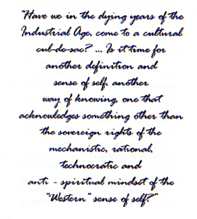 "Have we in the dying years of the
Industrial Age, come to a cultural
cul-de-sac? ... Is it time for
another definition and
sense of self, another
way of knowing, one that
acknowledges something other than
the sovereign rights of the
mechanistic, rational,
technocratic and
anti - spiritual mindset of the
"Western" sense of self?"